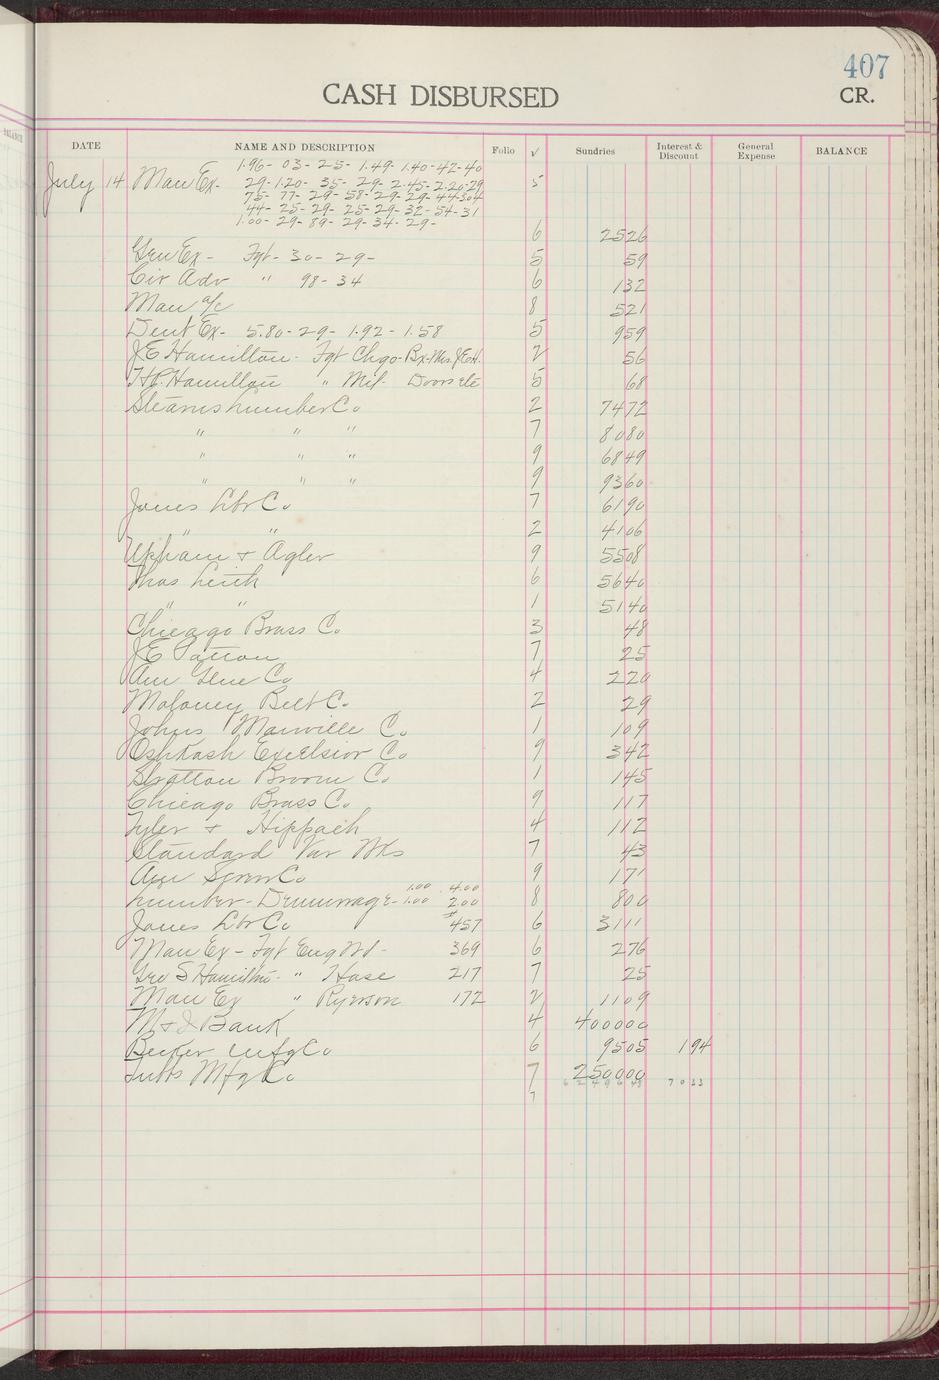 407
CASH DISBURSED
CR.
DATE NAME AND DESCRIPTION Folio √ Sundries Interest & Discount General Expense BALANCE
1.96- 03- 25- 1.49- 1.40-42-40
July 14 Man Ex- 29-1.20- 35- 29- 2.45-2.20-29 5
75- 77- 29- 58- 29- 29- 44-304
44- 25- 29- 25- 29- 32- 54-31
1.00- 29- 89- 29- 34- 29- 6 2526
Gen Ex- Fgt- 30- 29- 5 59
Cir Adv " 98-34 6 132
Man a/c 8 521
Dent Ex- 5.80-29- 1.92- 1.58 5 959
JE Hamilton- Fgt Chgo-Bx-Mrs. JEH. 2 56
H.P. Hamilton " Mil- Doors etc 5 68
Stearns Lumber Co 2 7472
" " " 7 8080
" " " 9 6849
" " " 9 9360
Jones Lbr Co 7 6190
" " 2 4106
Upham & Agler 9 5508
Thos Leith 6 5640
" " 1 5140
Chicago Brass Co 3 48
JE Patton 7 25
Am Glue Co 4 220
Maloney Belt Co 2 29
Johns Manville Co 1 109
Oshkosh Excelsior Co 9 342
Stratton Broom Co 1 145
Chicago Brass Co 9 117
Tyler & Hippach 4 112
Standard Var Wks 7 43
Am Screw Co 9 171
1.00 4.00
Lumber- Demurrage- 1.00 2.00 8 800
Jones Lbr Co 457 6 3111
Man Ex- Fgt Eng Wd- 369 6 276
Geo S Hamilton- " Hose 217 7 25
Man Ex " Ryerson 172 2 1109
M & J Bank 4 400000
Becker Mfg Co 6 9505 194
Tubbs Mfg Co 7 250000
7 6249648 7033